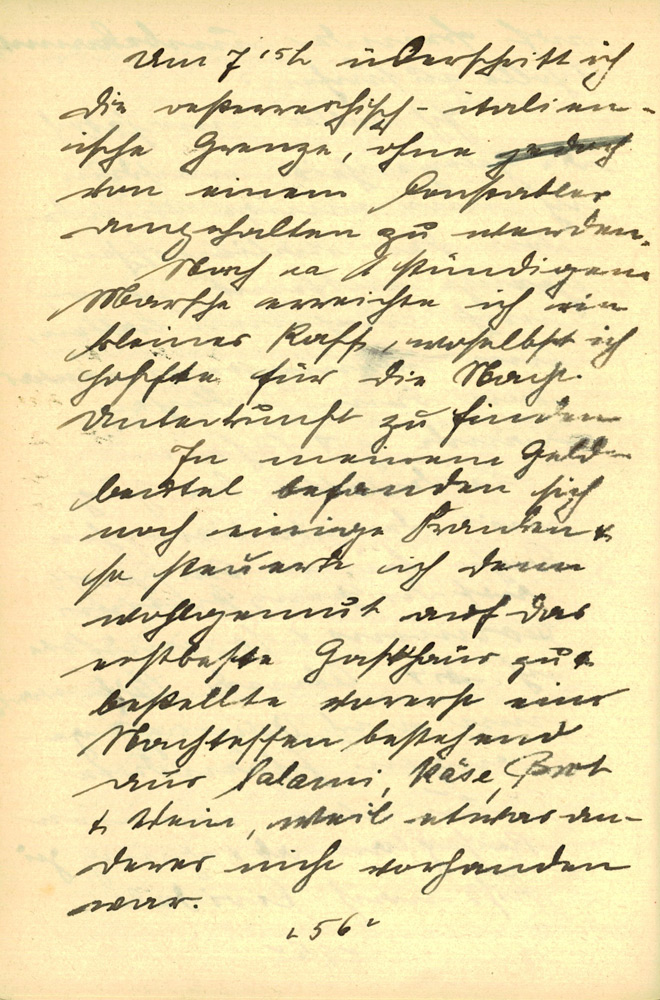 Um 7 15h überschritt ich
die oesterreichisch-italien-
ische Grenze, ohne jedoch
von einem Constabler
angehalten zu werden.
Nach ca 1 stündigem
Marsche erreichte ich ein
kleines Kaff, woselbst ich
hoffte für die Nacht
Unterkunft zu finden
In meinem Geld-
beutel befanden sich
noch einige Franken &
so steuerte ich denn
wohlgemut auf das
erstbeste Gasthaus zu &
bestellte vorerst ein
Nachtessen bestehend
aus Salami, Käse, Brot
& Wein, weil etwas an-
deres nicht vorhanden
war.
56